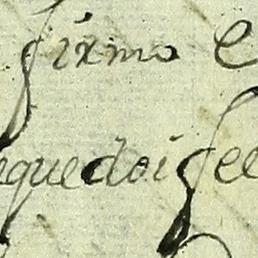 firmo e
quedoi fee